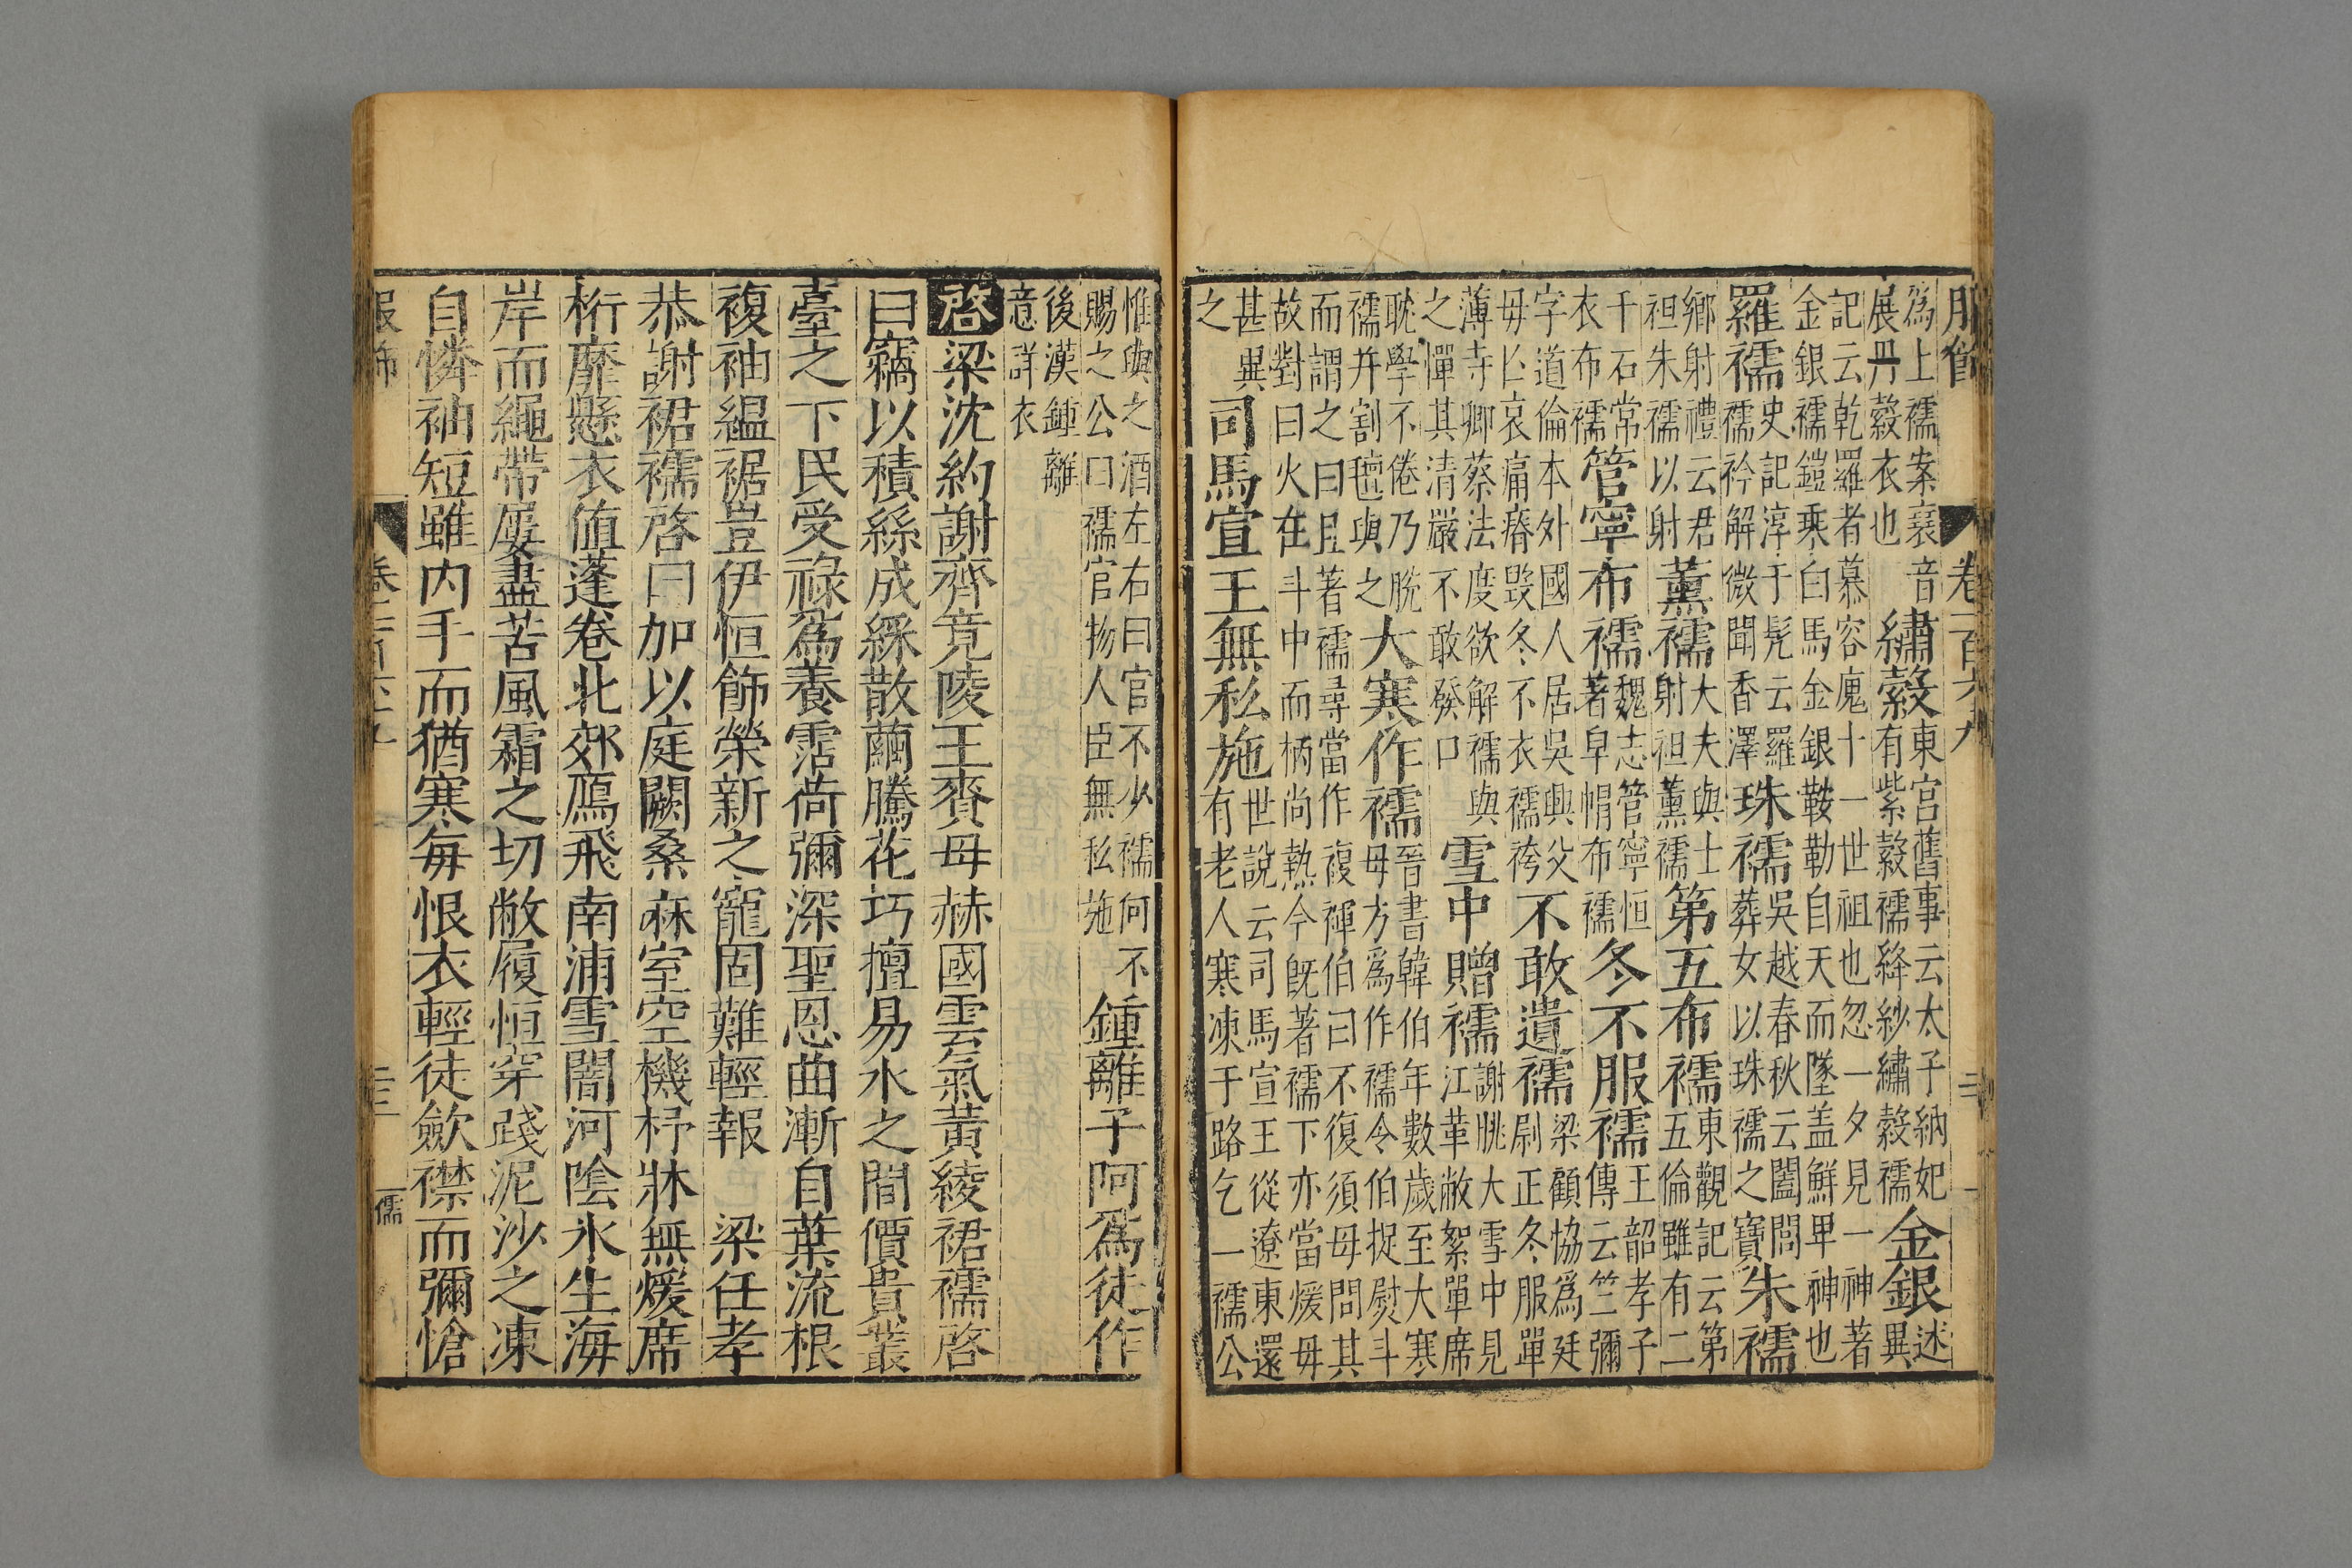 服飾 卷一百六九 二
爲上襦案襄音展丹縠衣也 繡縠 東宮舊事云太子納妃有紫縠襦絳紗繡縠襦 金銀 述異
記云乾羅者慕容廆十一世祖也忽一夕見一神著金銀襦鎧乘白馬金銀鞍勒自天而墜盖鮮卑神也
羅襦 史記淳于髡云羅襦衿解微聞香澤 珠襦 吳越春秋云闔閭葬女以珠襦之寶 朱襦
鄉射禮云君袒朱襦以射 薰襦 大夫與士射袒薰襦 第五布襦 東觀記云第五倫雖有二
千石常衣布襦 管寧布襦 魏志管寧恒著皁帽布襦 冬不服襦 王韶孝子傳云竺彌
字道倫本外國人居吳興父毋亡哀痛瘠毀冬不衣襦袴 不敢遺襦 梁顧協爲廷尉正冬服單
薄寺卿蔡法度欲解襦與之憚其清嚴不敢發口 雪中贈襦 謝朓大雪中見江革敝絮單席
耽學不倦乃脫襦并割氊與之 大寒作襦 晉書韓伯年數歲至大寒毋方爲作襦令伯捉熨斗
而謂之曰且著襦尋當作複褌伯曰不復須毋問其故對曰火在斗中而柄尚熱今旣著襦下亦當煖毋
甚異之 司馬宣王無私施 世說云司馬宣王從遼東還有老人寒凍于路乞一襦公
惟與之酒左右曰官不少襦何不賜之公曰襦官物人臣無私施 鍾離子阿爲徒作
後漢鍾離意詳衣
啓 梁沈約謝齊竟陵王賚母赫國雲氣黃綾裙襦啓
曰竊以積絲成綵散繭騰花巧擅易水之間價貴叢
臺之下民受祿爲養霑荷彌深聖恩曲漸自葉流根
複袖縕裾豈伊恒飾榮新之寵固難輕報 梁任孝
恭謝裙襦啓曰加以庭闕桑麻室空機杼牀無煖席
桁靡懸衣値蓬卷北郊鴈飛南浦雪闇河陰氷生海
岸而繩帶屢盡苦風霜之切敝履恒穿踐泥沙之凍
自憐袖短雖內手而猶寒每恨衣輕徒歛襟而彌愴
服飾 二 襦